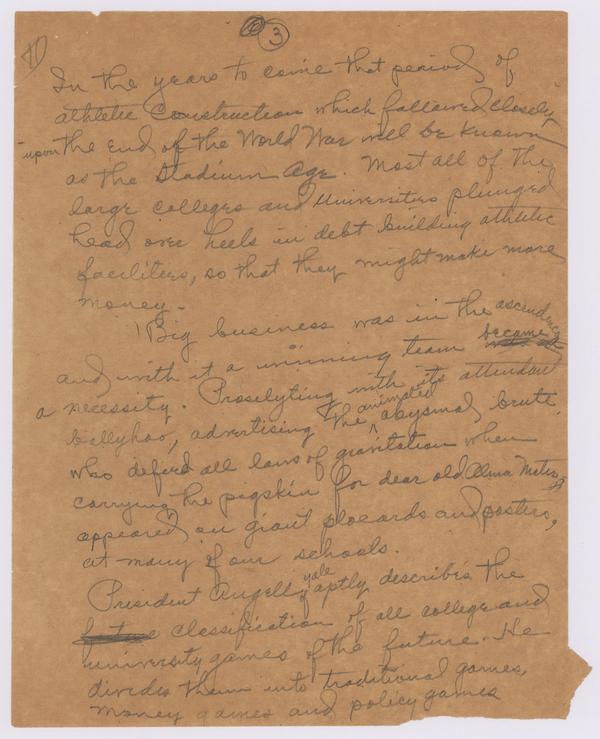 3
In the years to come that period of
athletic construction which followed closely
upon the end of the World War will be known
as the Stadium Age. Most all of the
large colleges and universities plunged
head over heels in debt building athletic
facilities, so that they might make more
money.
"Big business was in the ascendency
and with it a winning team became
a necessity. Proselyting with its attendant
ballyhoo, advertising the animated abysmal brute
who defied all laws of gravitation when
carrying the pigskin for dear old Alma Mater
appeared on giant placards and posters,
at many of our schools.
President Angell of Yale aptly describes the
classification of all college and
university games of the future. He
divides them into traditional games,
money games and policy games